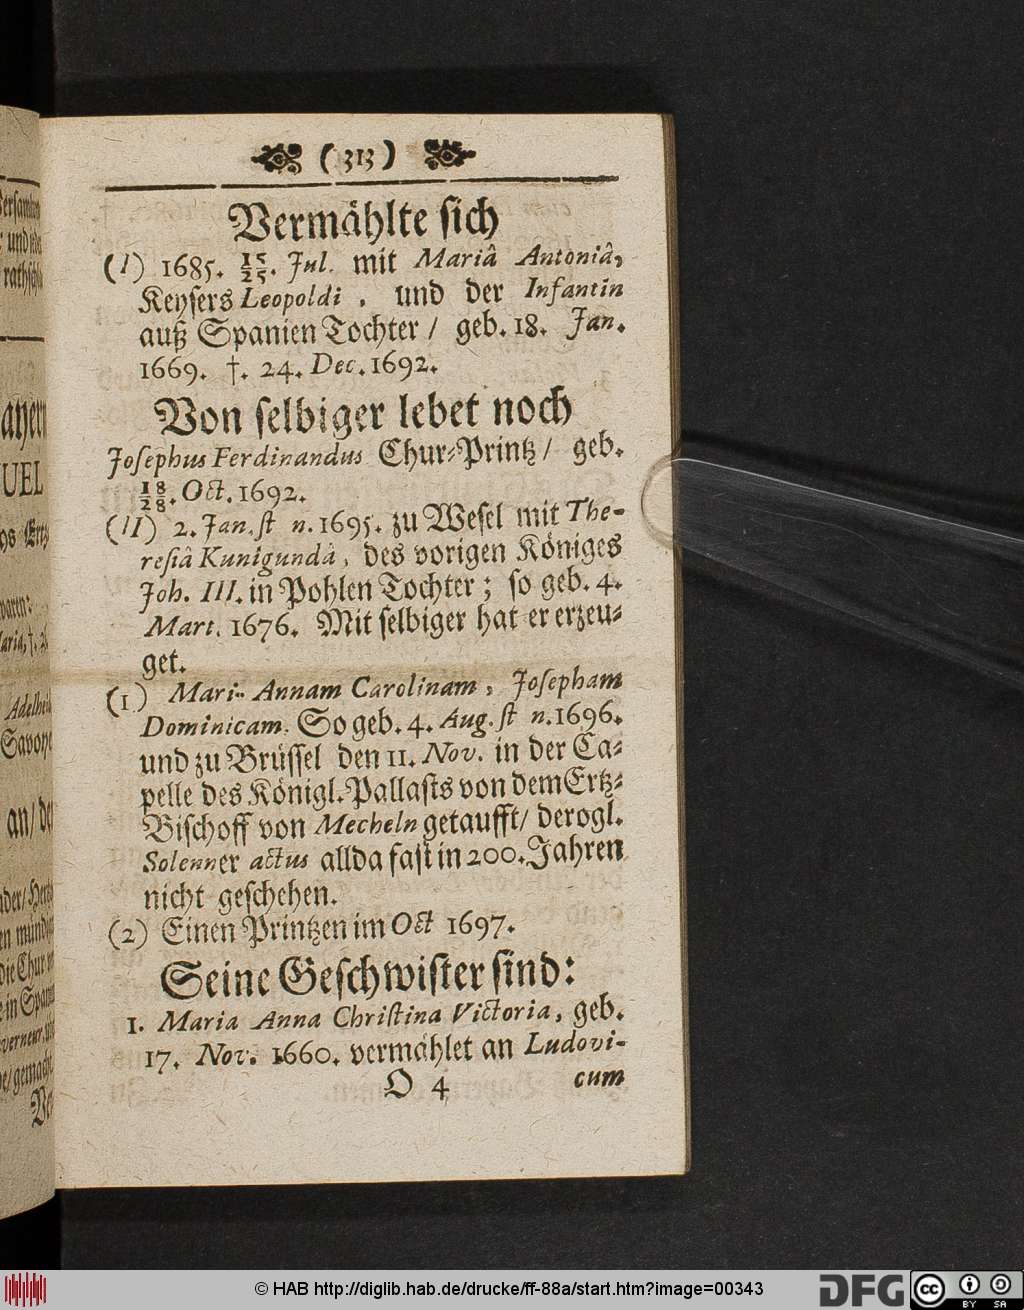 (313)
Vermählte sich
(I) 1685. 15/25. Jul. mit Mariâ Antoniâ,
Keysers Leopoldi, und der Infantin
auß Spanien Tochter / geb. 18. Jan.
1669. †. 24. Dec. 1692.
Von selbiger lebet noch
Josephus Ferdinandus Chur-Printz / geb.
18/28. Oct. 1692.
(II) 2. Jan. st n. 1695. zu Wesel mit The-
resiâ Kunigundâ, des vorigen Königes
Joh. III. in Pohlen Tochter; so geb. 4.
Mart. 1676. Mit selbiger hat er erzeu-
get.
(1.) Mari- Annam Carolinam, Josepham
Dominicam. So geb. 4. Aug. st n. 1696.
und zu Brüssel den 11. Nov. in der Ca-
pelle des Königl. Pallasts von dem Ertz-
Bischoff von Mecheln getaufft / derogl.
Solenner actus allda fast in 200. Jahren
nicht geschehen.
(2) Einen Printzen im Oct 1697.
Seine Geschwister sind:
1. Maria Anna Christina Victoria, geb.
17. Nov. 1660. vermählet an Ludovi-
O 4 cum
© HAB http://diglib.hab.de/drucke/ff-88a/start.htm?image=00343
DFG
cc BY SA